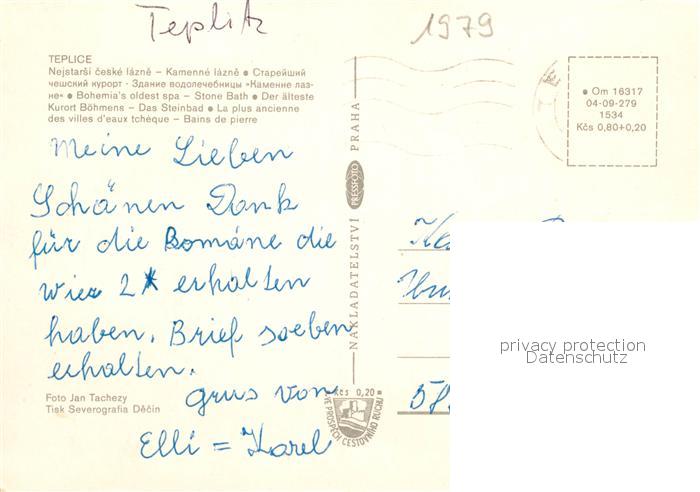 Teplitz
1979
TEPLICE
Nejstarší české lázně – Kamenné lázně • Старейший
чешский курорт · Здание водолечебницы «Камение лаз-
не» • Bohemia's oldest spa – Stone Bath • Der älteste
Kurort Böhmens – Das Steinbad • La plus ancienne
des villes d'eaux tchéque – Bains de pierre
• Om 16317
04-09-279
1534
Kčs 0,80+0,20
Meine Lieben
Schänen Dank
für die Romäne die
wier 2x erhalten
haben. Brief soeben
erhalten.
grus von
Elli = Karel
NAKLADATELSTVÍ PRESSFOTO PRAHA
Foto Jan Tachezy
Tisk Severografia Děčín
Kčs 0,20
VE PROSPĚCH CESTOVNÍHO RUCHU
58
privacy protection
Datenschutz